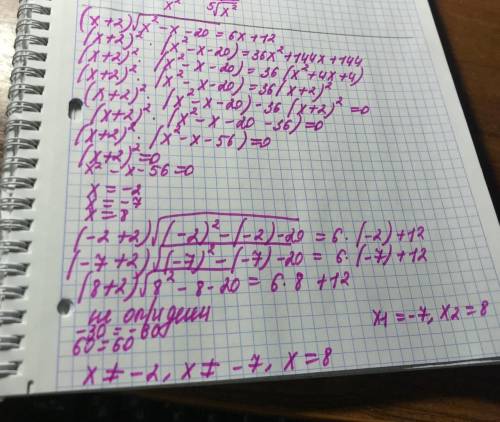 x² ⁵√x²
(x+2)√x²-x-20=6x+12
(x+2)² · (x²-x-20)=36x²+144x+144
(x+2)² · (x²-x-20)=36(x²+4x+4)
(x+2)² · (x²-x-20)=36(x+2)²
(x+2)² · (x²-x-20)-36(x+2)²=0
(x+2)² · (x²-x-20-36)=0
(x+2)² · (x²-x-56)=0
(x+2)²=0
x²-x-56=0
x=-2
x=-7
x=8
(-2+2)√(-2)²-(-2)-20 = 6·(-2)+12
(-7+2)√(-7)²-(-7)-20 = 6·(-7)+12
(8+2)√8²-8-20 = 6·8+12
не
-30=-30
60=60
x₁=-7, x₂=8
x≠-2, x≠-7, x=8